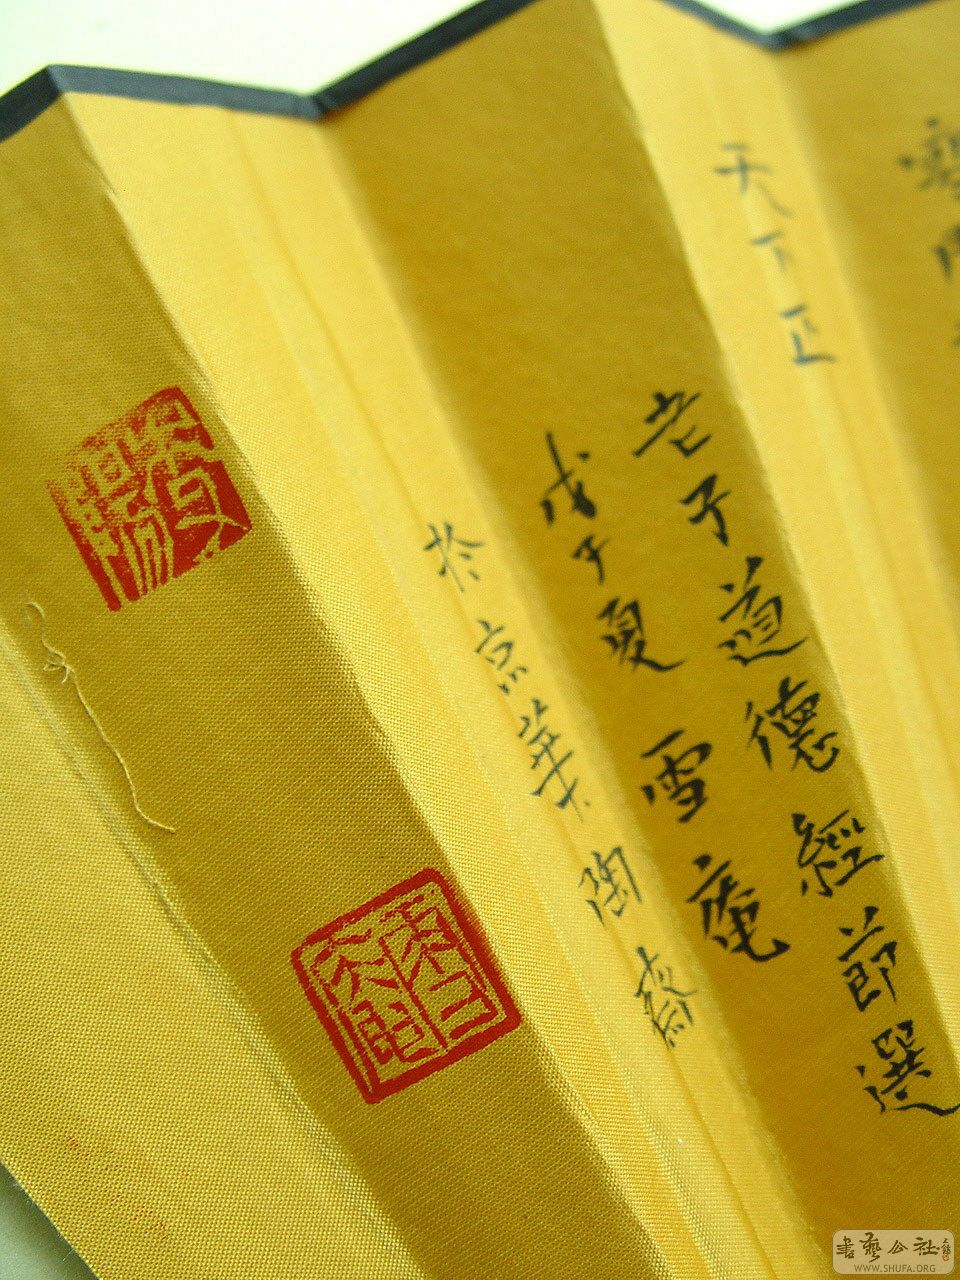 天下正
老子道德經節選
戊子夏雪庵
於京華陶齋
書藝公社
WWW.SHUFA.ORG